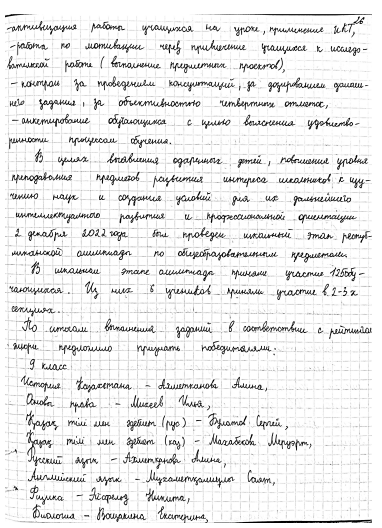 26
-активизация работы учащихся на уроке, применение ИКТ,
-работа по мотивации через привлечение учащихся к исследо-
вательской работе (выполнение предметных проектов),
-контроль за проведением консультаций, за дозированием домаш-
него задания, за объективностью четвертных отметок,
-анкетирование обучающихся с целью выяснения удовлетво-
ренности процессом обучения.
В целях выявления одаренных детей, повышения уровня
преподавания предметов развития интереса школьников к изу-
чению наук и создания условий для их дальнейшего
интеллектуального развития и профессиональной ориентации
2 декабря 2022 года был проведен школьный этап респуб-
ликанской олимпиады по общеобразовательным предметам.
В школьном этапе олимпиады приняло участие 125 обу-
чающихся. Из них 6 учеников приняли участие в 2-3 х
секциях.
По итогам выполнения заданий в соответствии с рейтингом
жюри предложило признать победителями:
9 класс
История Казахстана - Ахметканова Амина,
Основы права - Михеев Илья,
Қазақ тілі мен әдебиеті (рус) - Булатов Сергей,
Қазақ тілі мен әдебиеті (каз) - Махабекова Меруерт,
Русский язык - Ахметканова Амина,
Английский язык - Саят,
Физика - Никита,
Биология - Екатерина,